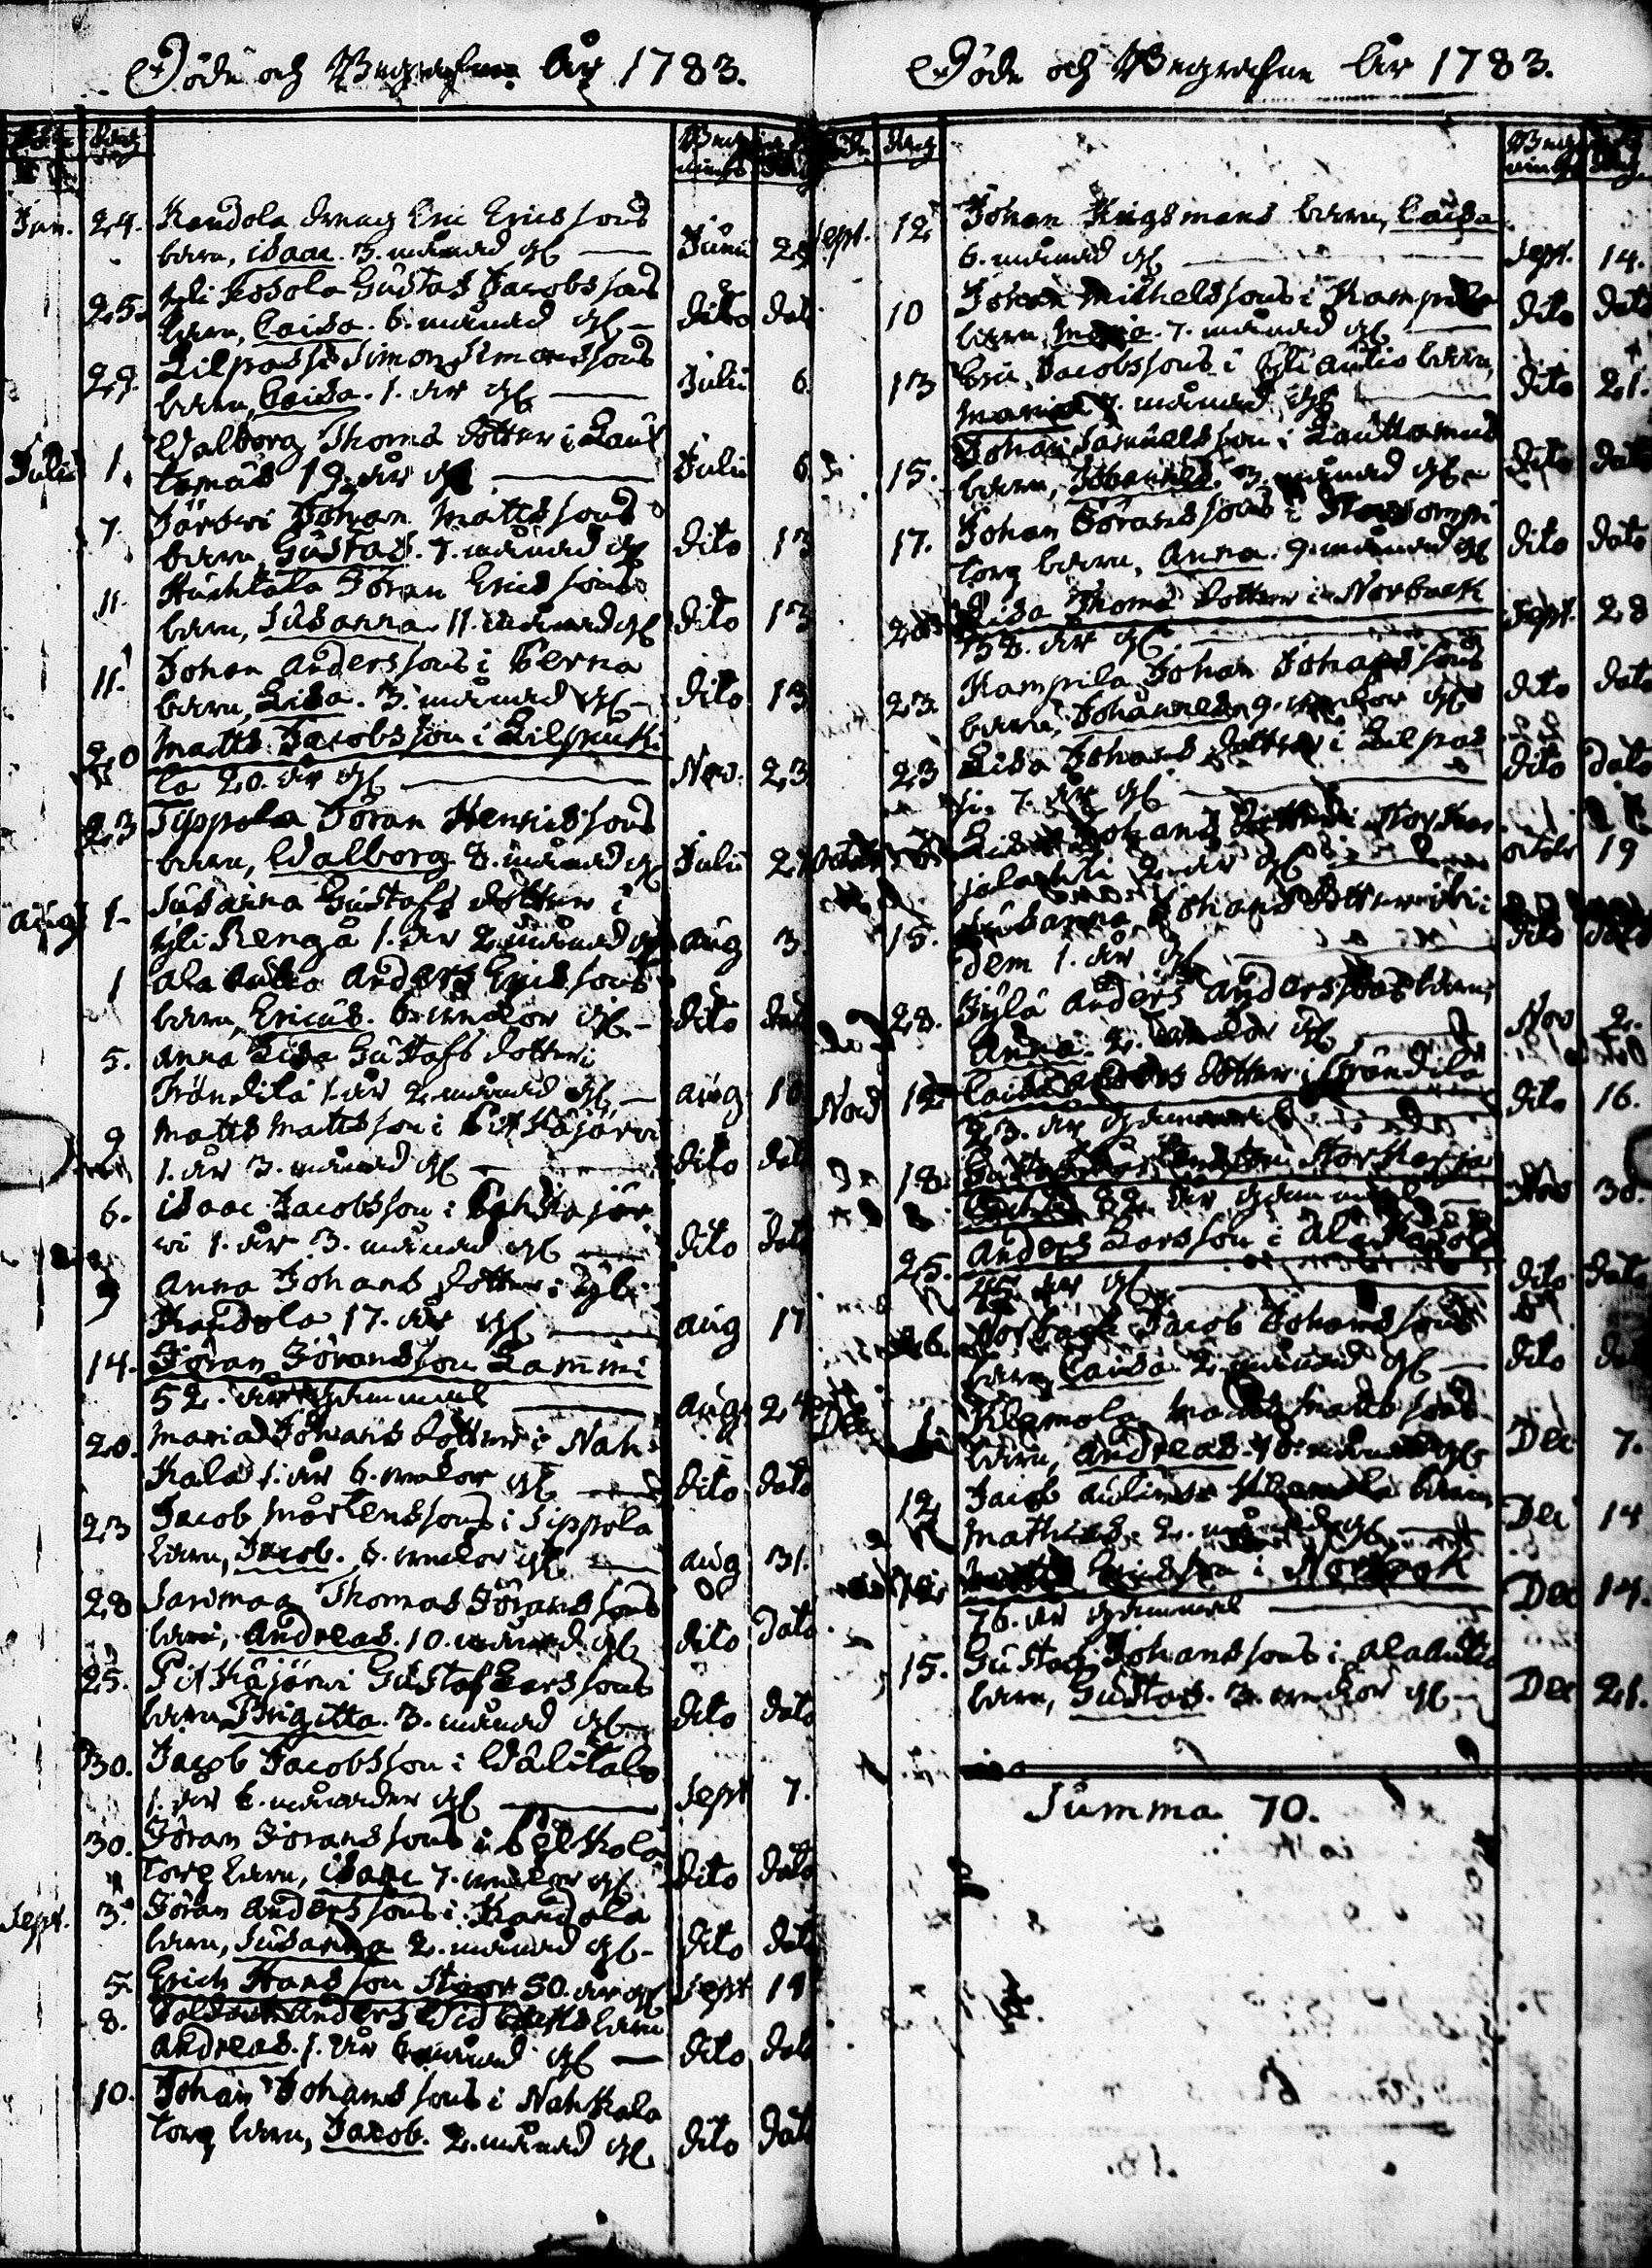 Döde och Begrafne År 1783.
Jun. 24. Kandola dreng Eric Ericssons
barn, isaac. 3. månad gl Junii 29
25. yli Kosola Gustaf Jacobssons
barn, Caisa. 6. månad gl dito dato
29. Lilpassi Simon Simonssons
barn, Caisa. 1. år gl Julii 6
Julii 1. Walborg Thoms dotter i Laut
tamus 19. år gl Julii 6
7. Järwi Johan Mattssons
barn, Gustaf. 7. månad gl dito 13
11. Huchtala Jöran Ericssons
barn, Susanna 11. månad gl dito 13
11. Johan Anderssons i Perna
barn, Lisa. 3. månad gl dito 13
20 Matts Jacobsson i
la 20. år gl Nov. 23
23 Typpola Jöran Henricssons
barn, Walborg 8. månad gl Julii 27
Aug 1 Susanna Gustafs dotter i
yli Renga 1. år 2. månad gl Aug 3
1 Ala Anders Ericssons
barn, Ericus. 6. wekor gl dito dato
5. Anna Lisa Gustafs dotter i
Fröndilä 1. år 2. månad gl Aug 10
9 Matts Mattsson i Pitkäjärwi
1. år 3. månad gl dito dato
6. isaac Jacobsson i
wi 1. år 3. månad gl dito dato
9 Anna Johans dotter i yli
Kandola 17. år gl Aug 17
14. Jöran Jöransson Lammi
52. år gammal Aug 24
20. Maria Johans dotter i Nah
kala 1. år 6. wekor gl dito dato
23 Jacob Mårtenssons i Sippola
barn, Jacob. 6. wekor gl Aug 31.
28 Sarvmaa Thomas Jöranssons
barn, Andreas. 10. månad gl dito dato
25. Pitkäjärwi Gustaf Larssons
barn Brigitta. 3. månad gl dito dato
30. Jacob Jacobsson i Wälitalo
1. år 6. månader gl Sept 7.
30. Jöran Jöranssons i
torp barn, isaac 7. wekor gl dito dato
Sept. 3. Jöran Anderssons i Kandola
barn, Susanna 2. månad gl dito dato
5. Erich Hansson Stoor 50. år gl Sept 14
8. Soldat Anders barn
Andreas. 1. år 6 månad gl dito dato
10. Johan Johanssons i Nahkala
torp barn, Jacob. 2. månad gl dito dato
Döde och Begrafne År 1783.
Sept. 12 Johan Krigsmans barn, Caisa
6. månad gl Sept. 14.
10 Johan Michelssons i Kampila
barn, Maria. 7. månad gl dito dato
13 Eric Jacobssons i yli autio barn,
Maria 7. månad gl dito 21.
15. Johan Samuelsson i Lauttamus
barn, Johannes. 3. månad gl dito dato
17. Johan Jöranssons i
torp barn, Anna. 9. månad gl dito dato
Lisa Thoms dotter i Norback
58. år gl Sept. 28
23. Kampila Johan Johanssons
barn, Johannes 9. wekor gl dito dato
23 Lisa Johans dotter i Lilpas
si, 7. år gl dito dato
Johans dotter i
2. år gl octobr 19
15. Susanna Johans dotter ibi
dem 1. år gl dito dato
28. Jylä Anders Anderssons barn
Anna. 2. wekor gl Nov 2.
Nov 12 Caisa dotter i Fröndila
23. år gammal dito 16.
18. Storkarja
82. år gammal Nov 30
25. Anders Larsson i
år gl dito dato
26. Norback Jacob Johanssons
barn, Caisa 2. månad gl dito dato
Dec 1. Klemola Matts Mattssons
barn, Andreas 10. månad gl Dec 7.
12 Jacob barn
Mathias. 2. gl Dec 14
Ericsson i Norback
76. år gammal Dec 14.
15. Gustaf Johanssons i ala autio
barn, Gustaf. 3. wekor gl Dec 21.
Summa 70.